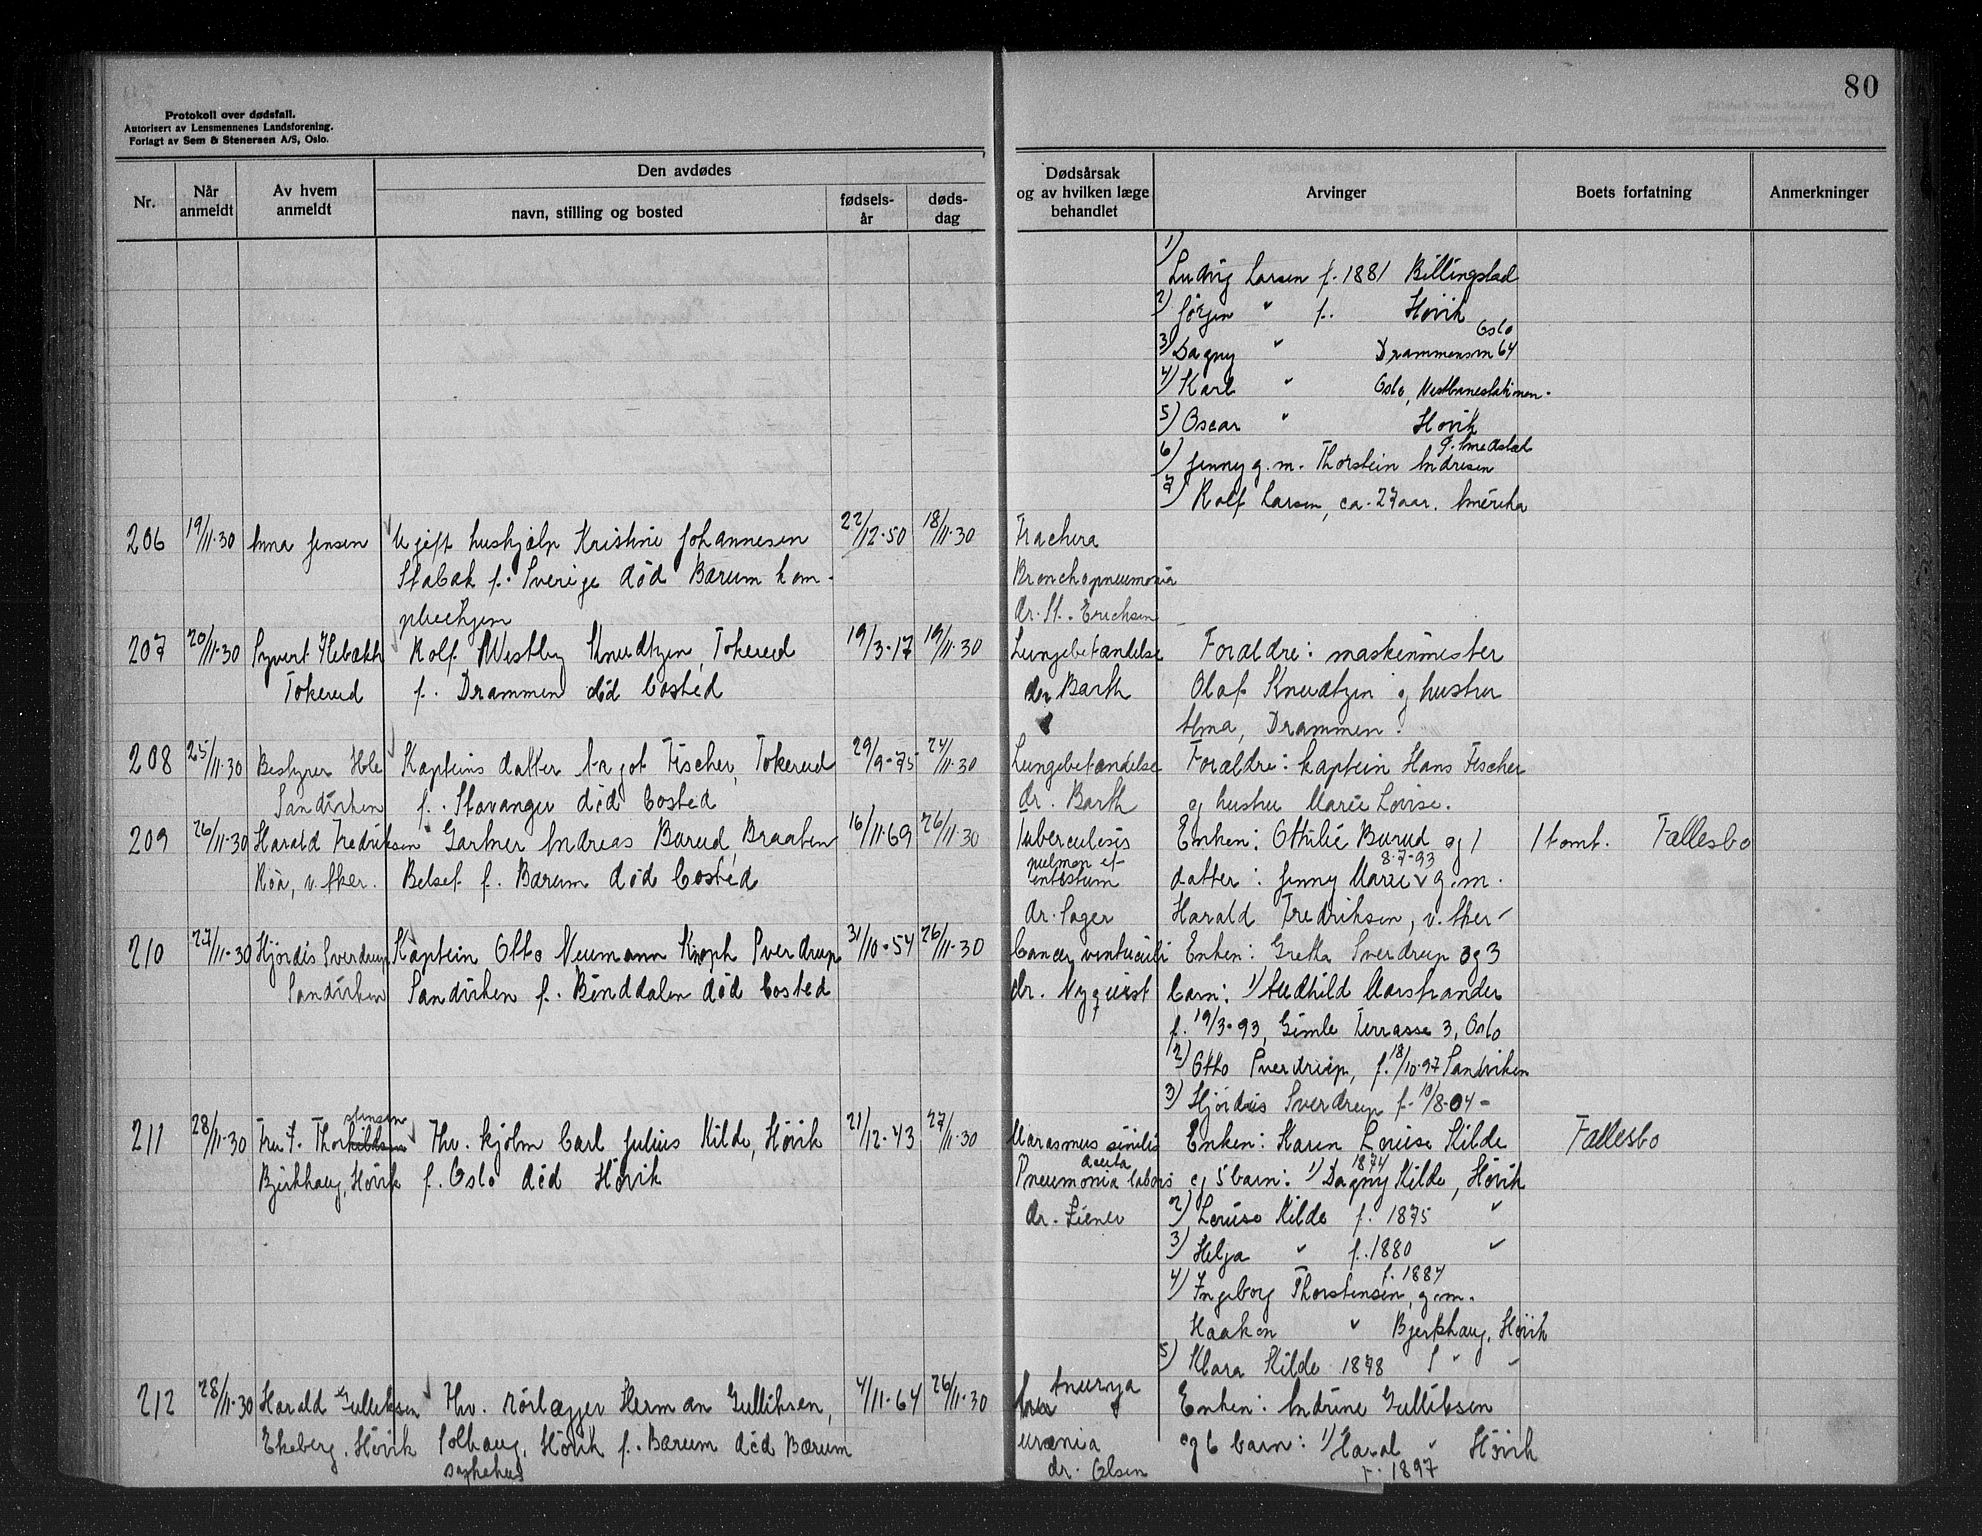 80
Protokoll over dødsfall.
Autorisert av Lensmennenes Landsforening.
Forlagt av Sem & Stenersen A/S, Oslo.
Nr.
Når anmeldt
Av hvem anmeldt
Den avdødes
navn, stilling og bosted
fødsels-år
døds-dag
Dødsårsak og av hvilken læge behandlet
Arvinger
Boets forfatning
Anmerkninger
1) Ludvig Larsen f. 1881 Billingstad
2) Jörgen " f. Høvik
3) Dagny " Drammensvn 64 Oslo
4) Karl " Oslo, Vestbanestationen.
5) Oscar " Høvik
6) Jenny g. m. Thorstein Andresen
7) Rolf Larsen, ca. 27 aar. Amerika
206 19/11-30 Anna Jensen Ugift hushjælp Kristine Johannesen 22/12-50 18/11-30
Stabæk f. Sverige död Bærum kom-
pleiehjem
Bronchopneumonia
dr. St. Erichsen
207 20/11-30 Syvert Hebækk Rolf Westby Knudtzen, Tokerud 19/3-17 19/11-30 Lungebetændelse Forældre: maskinmester
Tokerud f. Drammen död bosted dr Barth Olaf Knudtzen og hustru
Alma, Drammen.
208 25/11-30 Bestyrer Hole Kapteins datter Margot Fischer, Tokerud 29/9-75 24/11-30 Lungebetændelse Forældre: kaptein Hans Fischer
Sandviken f. Stavanger död bosted dr. Barth og hustru Marie Lovise.
209 26/11-30 Harald Fredriksen Gartner Andreas Burud, Braaten 16/11-69 26/11-30 Tuberculosis Enken: Ottilie Burud og 1 1 tomt. Fællesbo
Röa, v. Aker. Belset f. Bærum död bosted pulmon et intestum datter: Jenny Marie 8-7-93 g. m.
dr. Sager Harald Fredriksen, v. Aker-
210 27/11-30 Hjördis Sverdrup Kaptein Otto Neumann Knoph Sverdrup 31/10-54 26/11-30 Cancer ventriculi Enken: Gretha Sverdrup og 3
Sandviken Sandviken f. Binddalen död bosted dr. Nyquist barn: 1) Audhild Marstrander
f. 19/3-93, Gimle Terrasse 3, Oslo
2) Otto Sverdrup, f. 18/10-97 Sandviken
3) Hjördis Sverdrup f. 10/8-04 -
211 28/11-30 Fru F. Thorstensen Fhv. kjölm Carl Julius Kilde, Høvik 21/12-43 27/11-30 Marasmus senilis Enken: Karen Louise Kilde Fællesbo
Bjerkhaug, Høvik f. Oslo död Høvik Pneumonia acuta og 5 barn: 1) Dagny Kilde, 1874 Høvik
dr. Ziener 2) Louise Kilde f. 1875 "
3) Helga " f. 1880 "
4) Ingeborg Thorstensen, f. 1884 g. m.
Haakon " Bjerkhaug, Høvik
5) Klara Kilde 1878
212 28/11-30 Harald Gulliksen Fhv. rörlægger Herman Gulliksen, 4/11-64 26/11-30 Enken: Andrine Gulliksen
Ekeberg, Høvik Solhaug, Høvik f. Bærum död Bærum urænia og 6 barn: 1) Haral " Høvik
sykehus dr. Olsen f. 1897